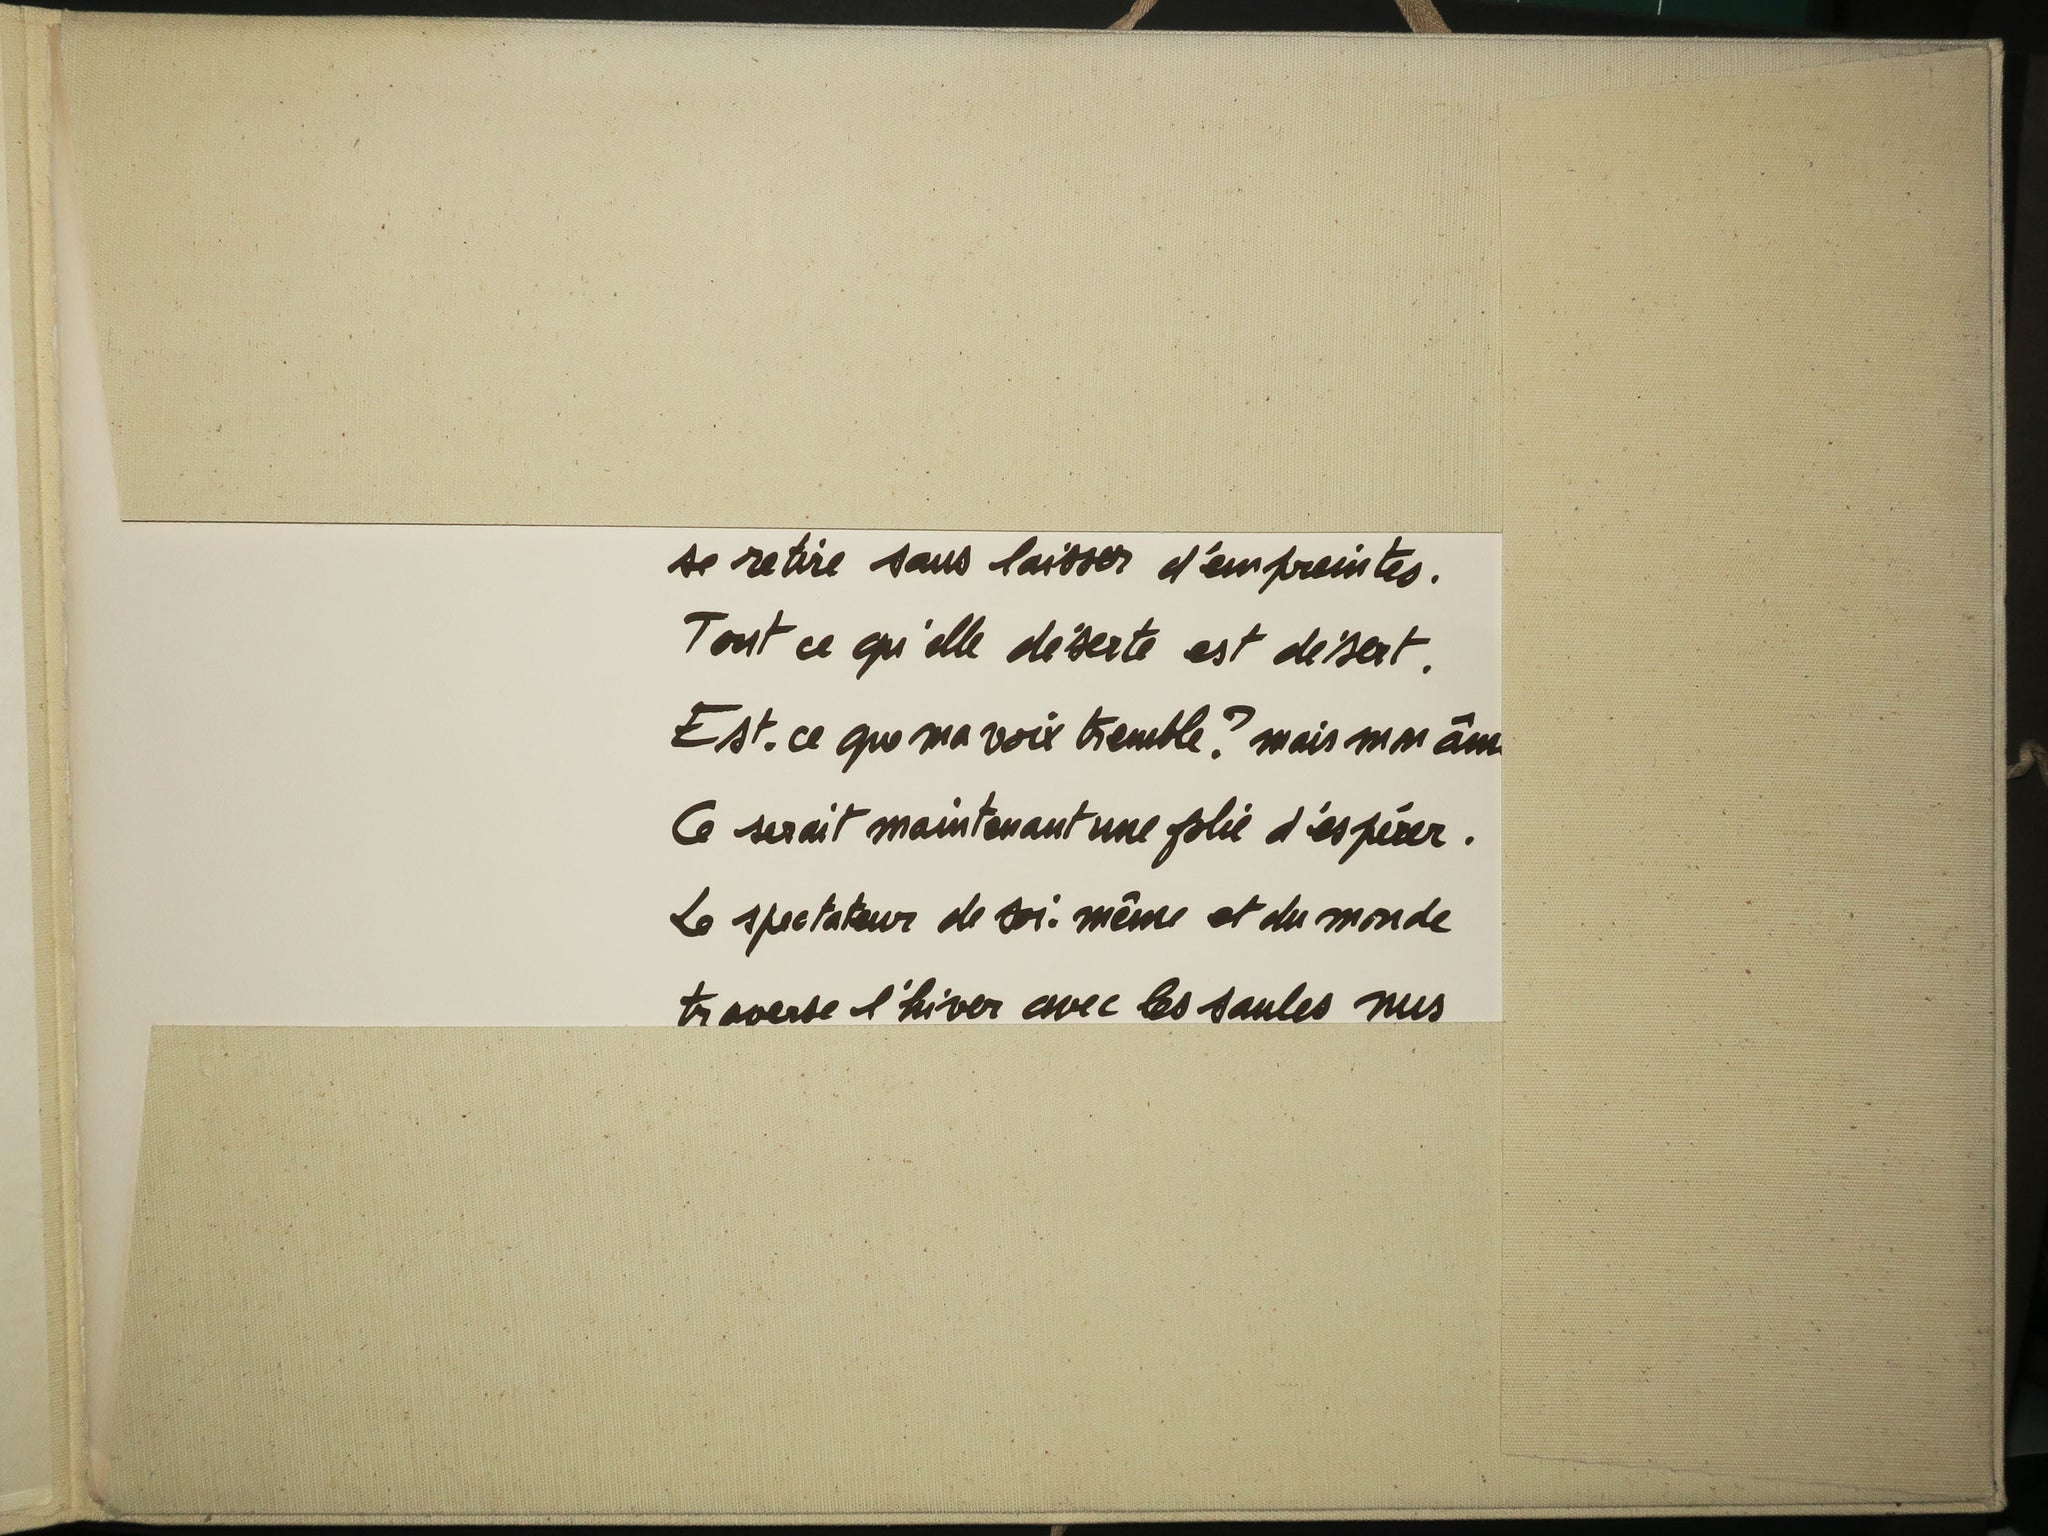 se retire sans laisser d'empreintes.
Tout ce qu'elle déserte est désert.
Est-ce que ma voix tremble? mais mon
Ce serait maintenant une folie d'espérer.
Le spectateur de soi-même et du monde
traverse l'hiver avec les saules nus